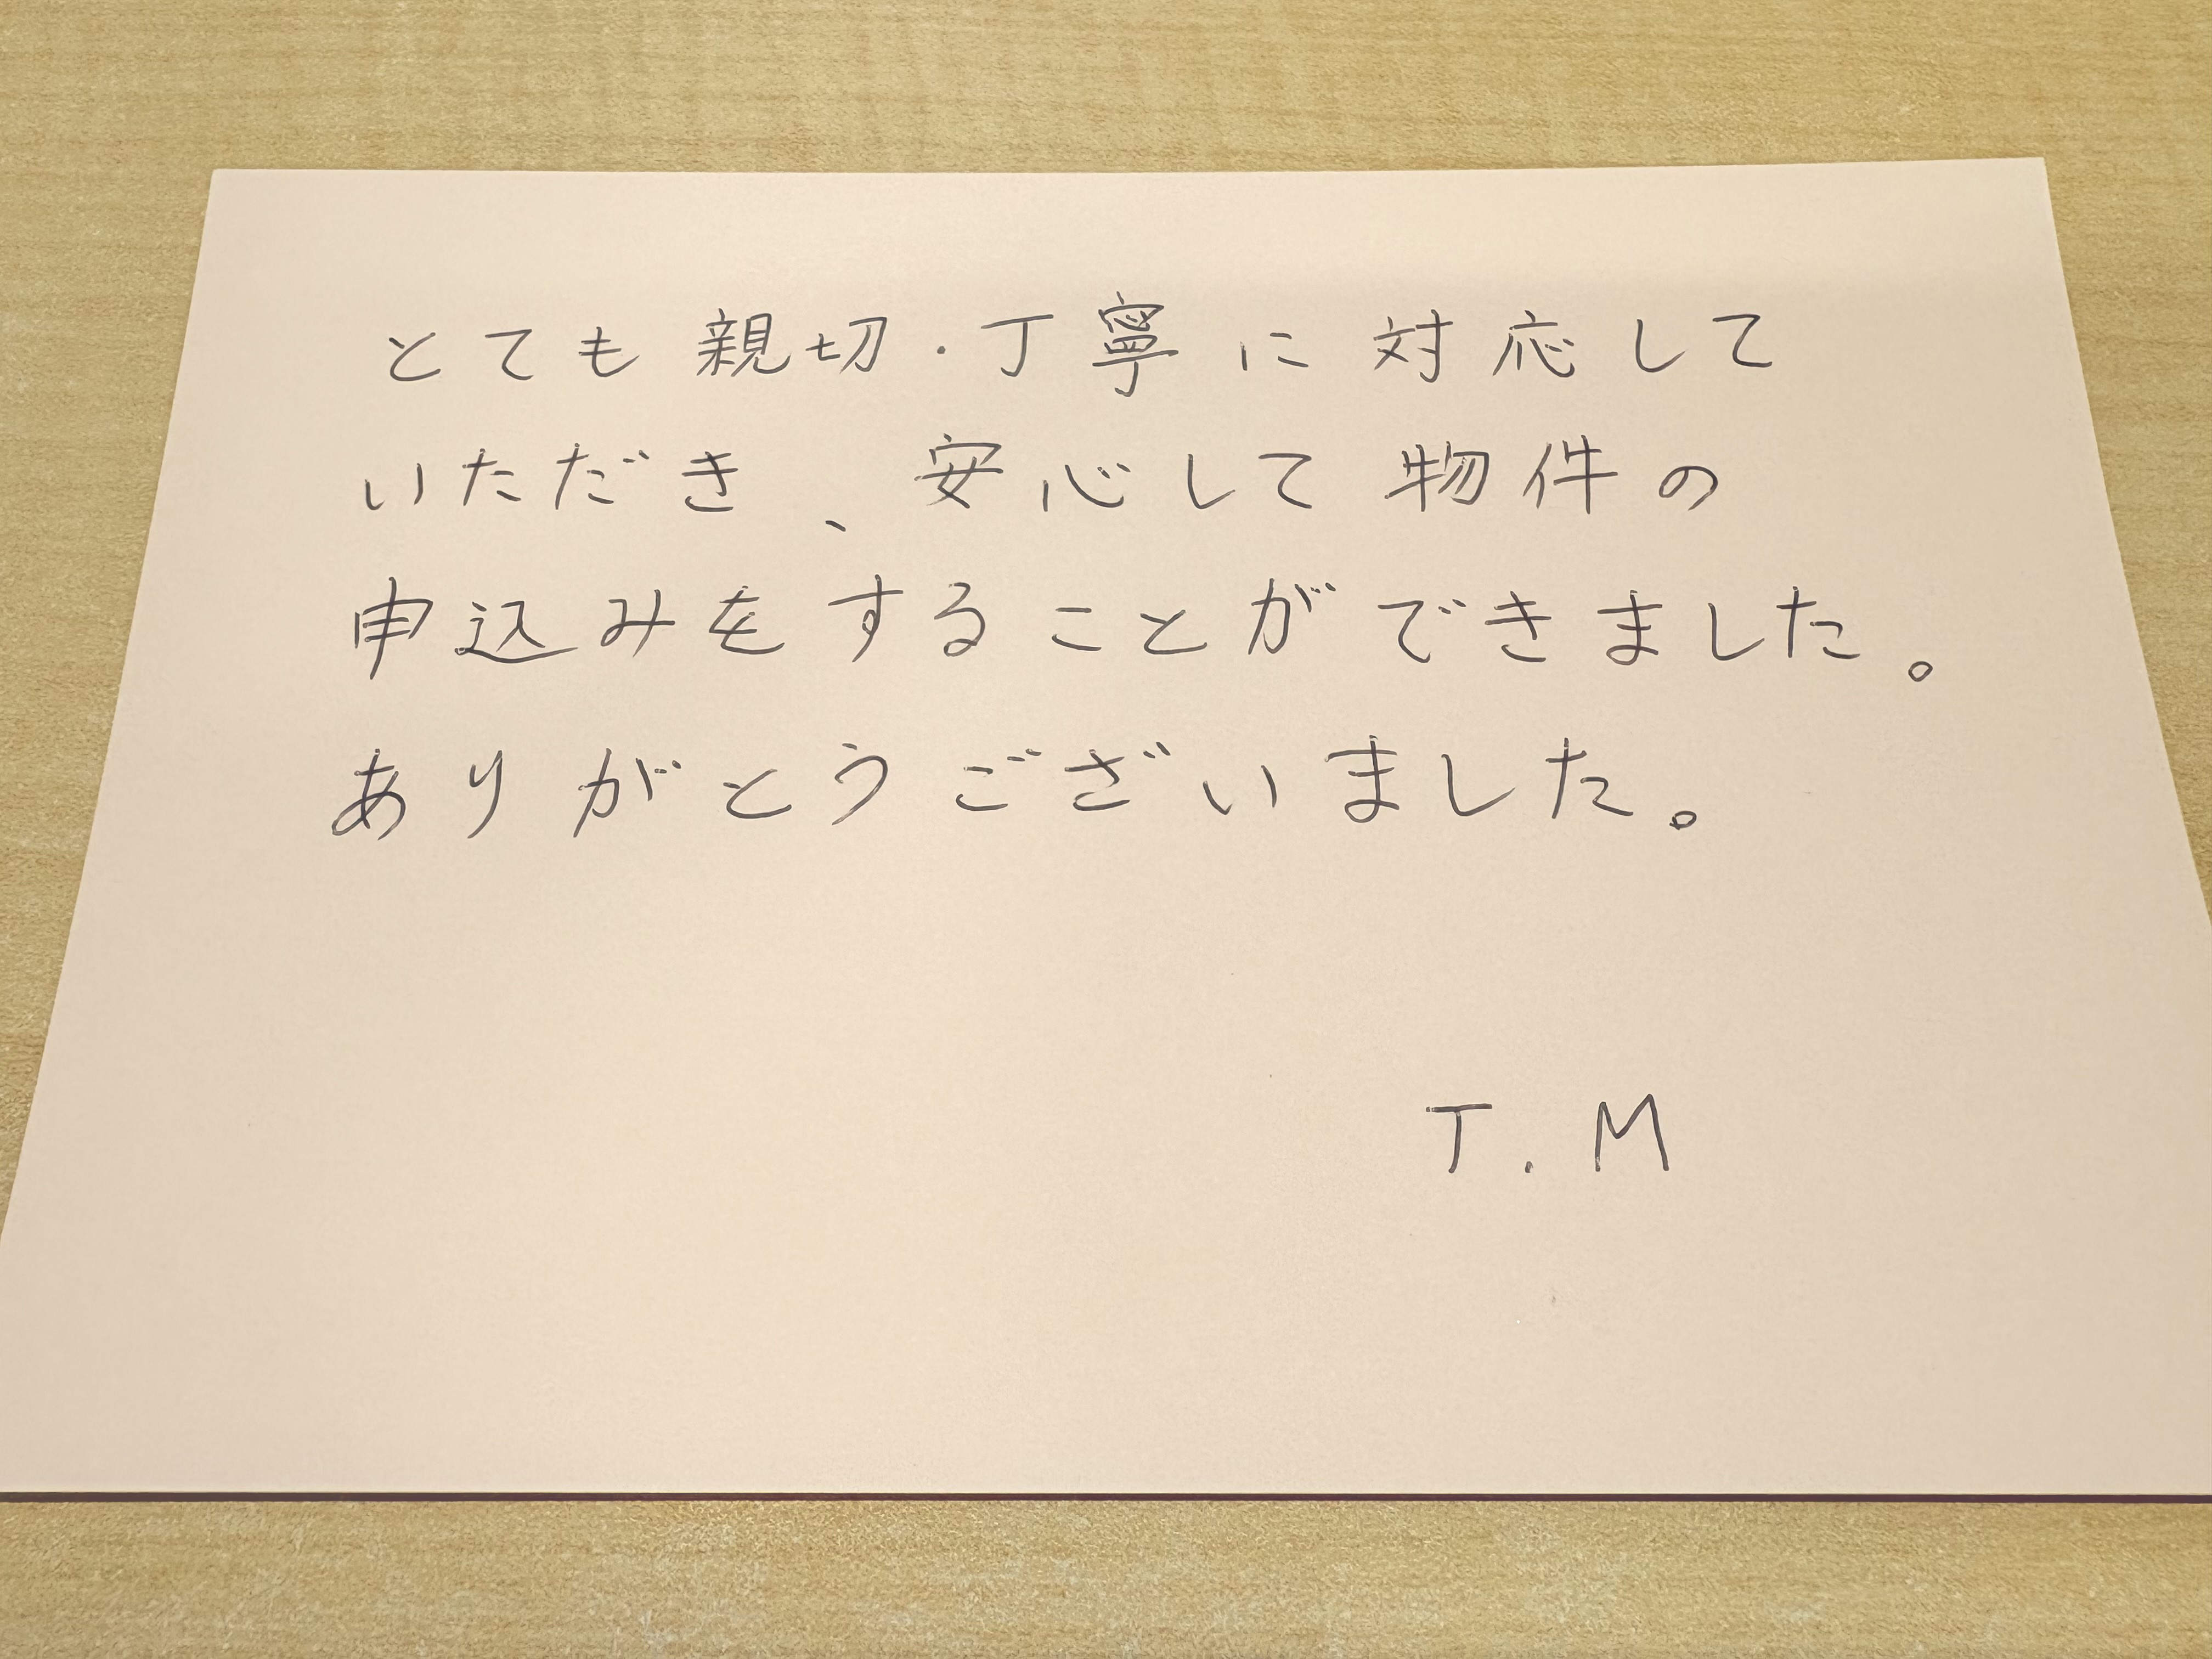 とても親切・丁寧に対応して
いただき、安心して物件の
申込みをすることができました。
ありがとうございました。
T.M